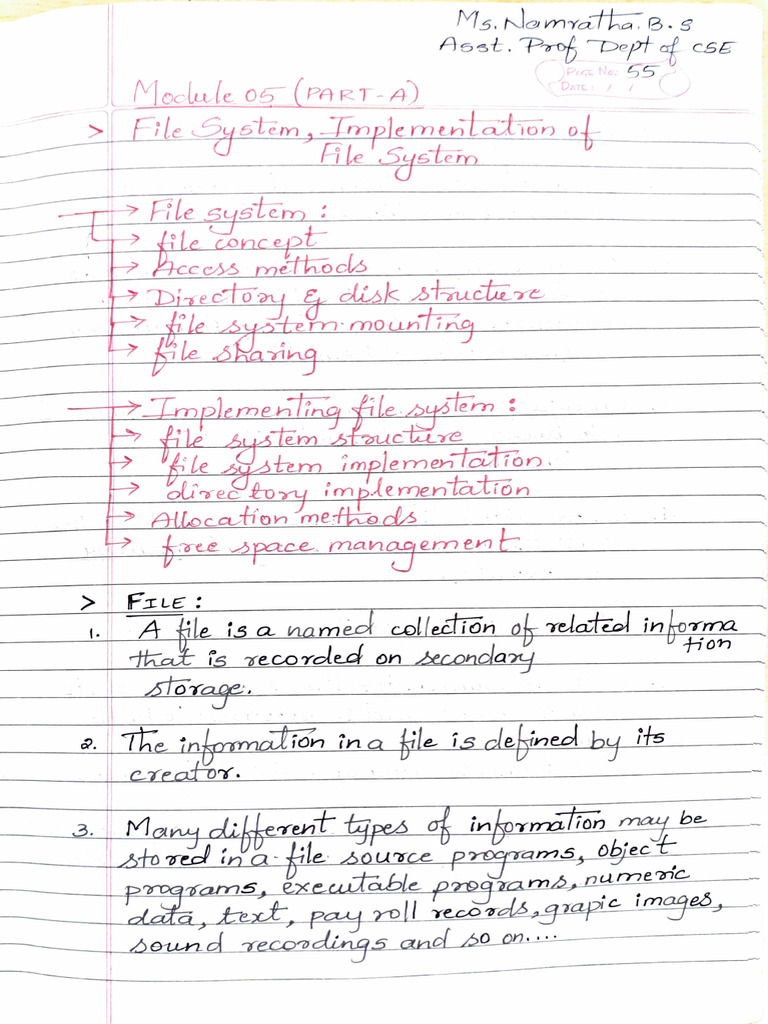 Ms. Namratha. B. S
Asst. Prof Dept of CSE
PAGE NO: 55
DATE: / /
Module 05 (PART-A)
> File System, Implementation of
File System
→ File system :
→ file concept
→ Access methods
→ Directory & disk structure
→ file system mounting
→ file sharing
→ Implementing file system :
→ file system structure
→ file system implementation.
→ directory implementation
→ Allocation methods
→ free space management.
> FILE :
1. A file is a named collection of related informa
tion
that is recorded on secondary
storage.
2. The information in a file is defined by its
creator.
3. Many different types of information may be
stored in a file source programs, object
programs, executable programs, numeric
data, text, pay roll records, grapic images,
sound recordings and so on....